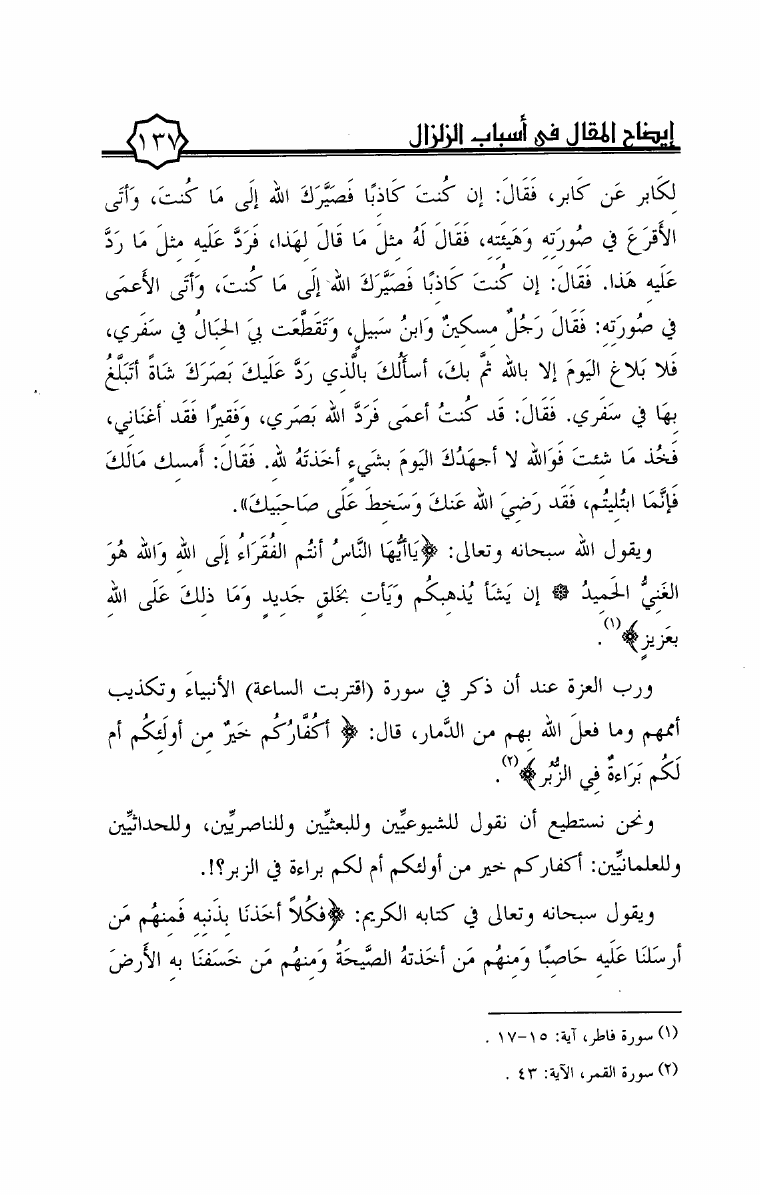 إيضاح المقال في أسباب الزلزال ١٣٧
لكَابِر عَن كَابِر، فَقَالَ: إِن كُنتَ كَاذِبًا فَصَيَّرَكَ الله إِلَى مَا كُنتَ، وَأَتَى
الأَقرَعَ فِي صُورَتِهِ وَهَيئَتِهِ، فَقَالَ لَهُ مِثلَ مَا قَالَ لِهَذَا، فَرَدَّ عَلَيهِ مِثلَ مَا رَدَّ
عَلَيهِ هَذَا. فَقَالَ: إِن كُنتَ كَاذِبًا فَصَيَّرَكَ الله إِلَى مَا كُنتَ، وَأَتَى الأَعمَى
فِي صُورَتِهِ: فَقَالَ رَجُلٌ مِسكِينٌ وَابنُ سَبِيلٍ، وَتَقَطَّعَت بِيَ الحِبَالُ فِي سَفَرِي،
فَلا بَلاغَ اليَومَ إِلا بِالله ثُمَّ بِكَ، أَسأَلُكَ بِالَّذِي رَدَّ عَلَيكَ بَصَرَكَ شَاةً أَتَبَلَّغُ
بِهَا فِي سَفَرِي. فَقَالَ: قَد كُنتُ أَعمَى فَرَدَّ الله بَصَرِي، وَفَقِيرًا فَقَد أَغنَانِي،
فَخُذ مَا شِئتَ فَوَالله لا أَجهَدُكَ اليَومَ بِشَيءٍ أَخَذتَهُ لله. فَقَالَ: أَمسِك مَالَكَ
فَإِنَّمَا ابتُلِيتُم، فَقَد رَضِيَ الله عَنكَ وَسَخِطَ عَلَى صَاحِبَيكَ)).
ويقول الله سبحانه وتعالى: ﴿يَاأَيُّهَا النَّاسُ أَنتُم الفُقَرَاءُ إِلَى الله وَالله هُوَ
الغَنِيُّ الحَمِيدُ ۞ إِن يَشَأ يُذهِبكُم وَيَأتِ بِخَلقٍ جَدِيدٍ وَمَا ذَلِكَ عَلَى الله
بِعَزِيزٍ﴾(١).
ورب العزة عند أن ذكر في سورة (اقتربت الساعة) الأنبياءَ وتكذيب
أممهم وما فعلَ الله بهم من الدَّمار، قال: ﴿ أَكُفَّارُكُم خَيرٌ مِن أُولَئِكُم أَم
لَكُم بَرَاءةٌ فِي الزُّبُرِ﴾(٢).
ونحن نستطيع أن نقول للشيوعيِّين وللبعثيِّين وللناصريِّين، وللحداثيِّين
وللعلمانيِّين: أكفاركم خير من أولئكم أم لكم براءة في الزبر؟!.
ويقول سبحانه وتعالى في كتابه الكريم: ﴿فَكُلاًّ أَخَذنَا بِذَنبِهِ فَمِنهُم مَن
أَرسَلنَا عَلَيهِ حَاصِبًا وَمِنهُم مَن أَخَذتهُ الصَّيحَةُ وَمِنهُم مَن خَسَفنَا بِهِ الأَرضَ
(١) سورة فاطر، آية: ١٥-١٧ .
(٢) سورة القمر، الآية: ٤٣ .